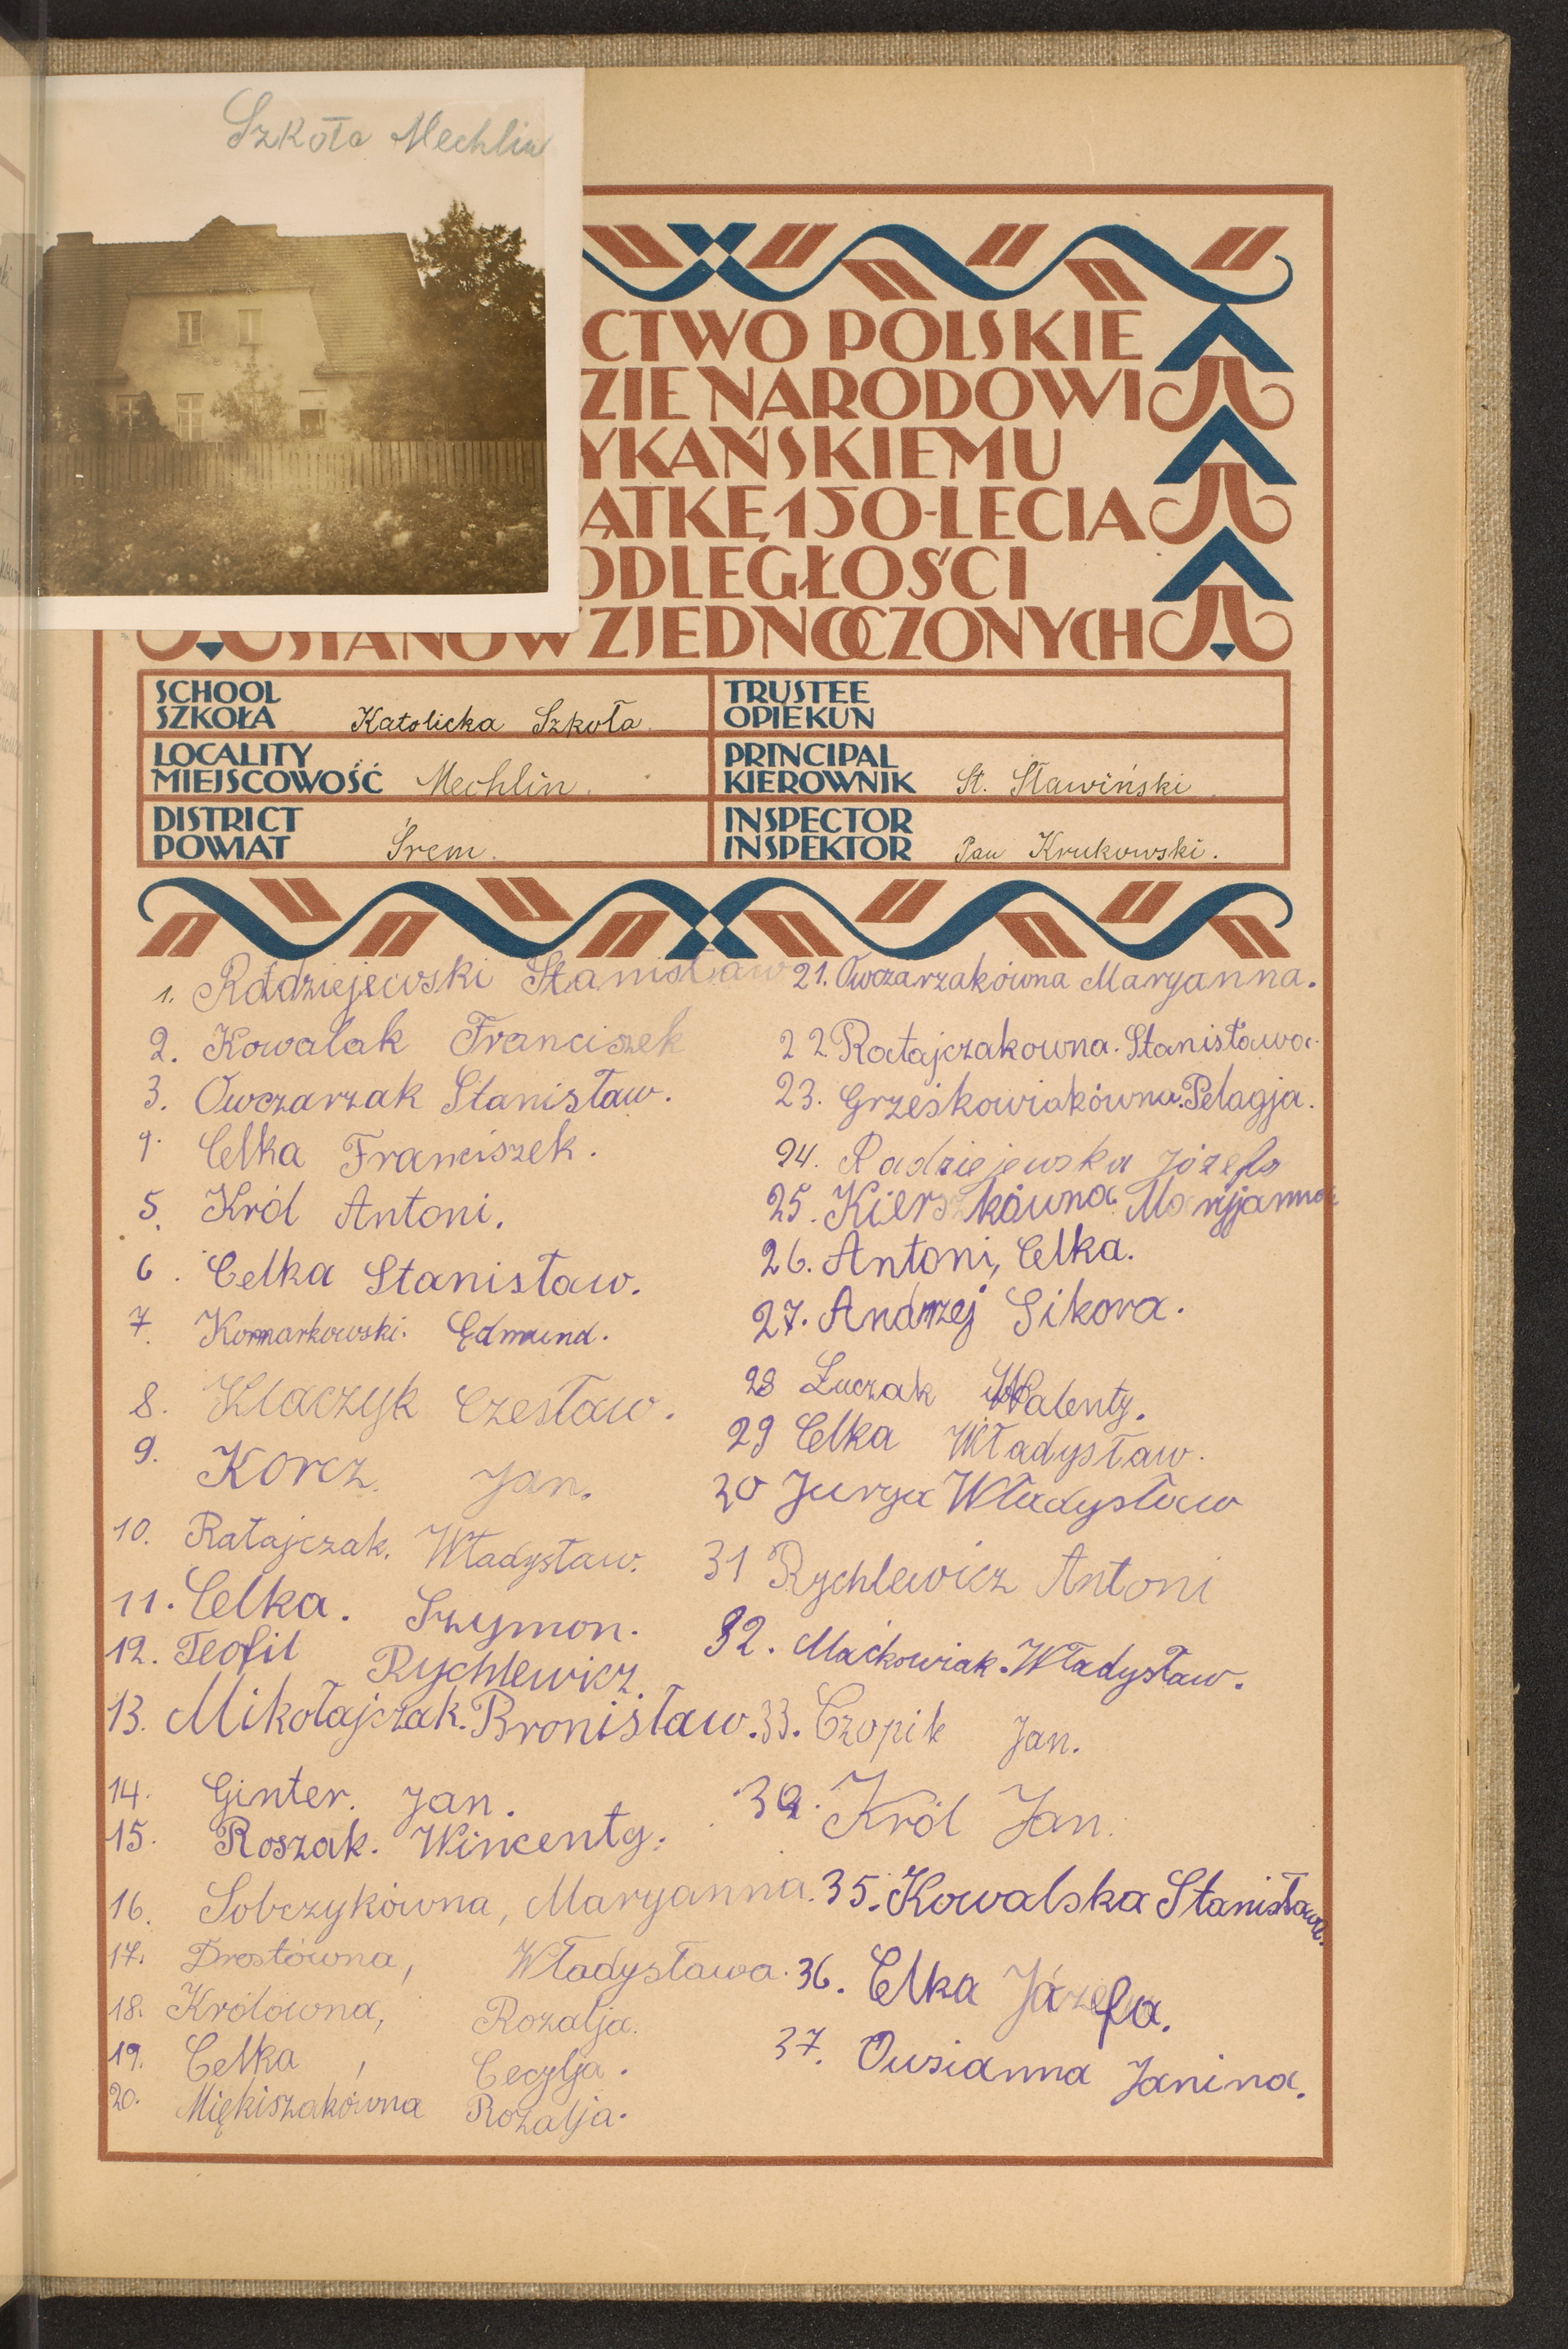 Szkoła Mechlin
CTWO POLSKIE
ZIE NARODOWI
YKAŃSKIEMU
ATKĘ 150-LECIA
ODLEGŁOŚCI
STANÓW ZJEDNOCZONYCH
SCHOOL
SZKOŁA Katolicka Szkoła
TRUSTEE
OPIEKUN
LOCALITY
MIEJSCOWOŚĆ Mechlin.
PRINCIPAL
KIEROWNIK St. Sławiński
DISTRICT
POWIAT Śrem.
INSPECTOR
INSPEKTOR Pan Krukowski.
1. Radziejewski Stanisław
2. Kowalak Franciszek
3. Owczarzak Stanisław.
4. Celka Franciszek.
5. Król Antoni.
6. Celka Stanisław.
7. Kormarkowski. Edmund.
8. Klaczyk Czesław.
9. Korcz. Jan.
10. Ratajczak. Władysław.
11. Celka. Szymon.
12. Teofil Rychlewicz
13. Mikołajczak. Bronisław.
14. Ginter. Jan.
15. Roszak. Wincenty.
16. Sobczykówna, Maryanna.
17. Drostówna, Władysława.
18. Królówna, Rozalja.
19. Celka, Cecylja.
20. Miękiszakówna Rozalja.
21. Owczarzakówna Maryanna.
22 Ratajczakowna. Stanisława.
23. Grześkowiakówna. Pelagja.
24. Radziejewska Józefa
25. Kierszkówna Maryjanna
26. Antoni, Celka.
27. Andrzej Sikora.
28 Łuczak Walenty.
29 Celka Władysław.
30 Jurga Władysław
31 Rychlewicz Antoni
32. Maćkowiak. Władysław.
33. Czopik Jan.
34. Król Jan.
35. Kowalska Stanisława.
36. Celka Józefa.
37. Janina.